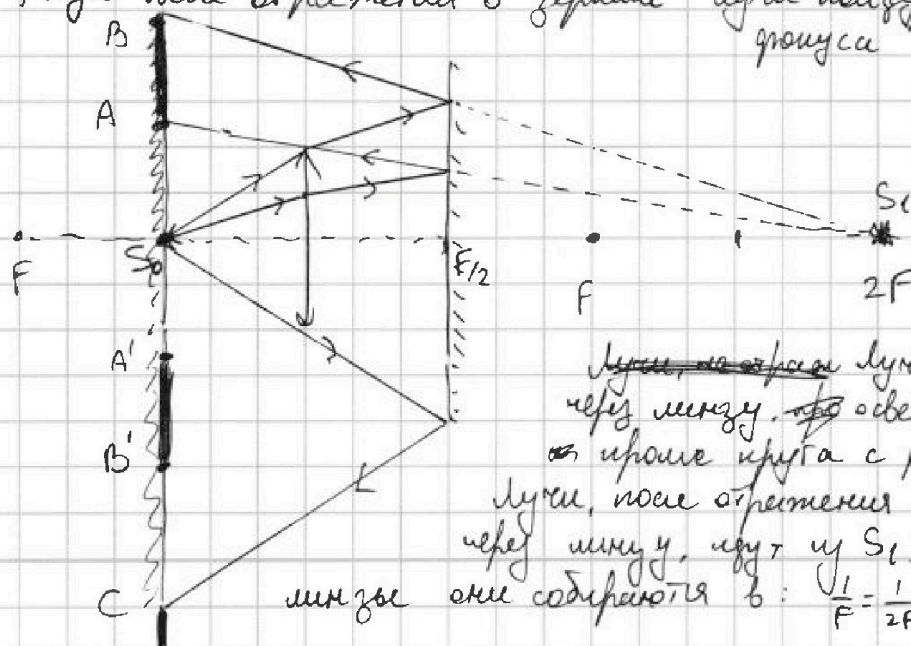 после отражения в зеркале лучи
фокуса
B
A
S₀
F
F/2
F
S₁
2F
A'
B'
C
Луч
через линзу. осве
кроме круга с
Лучи, после отражения
через линзу, идут из S₁.
линзы они собираются в: 1/F = 1/2F